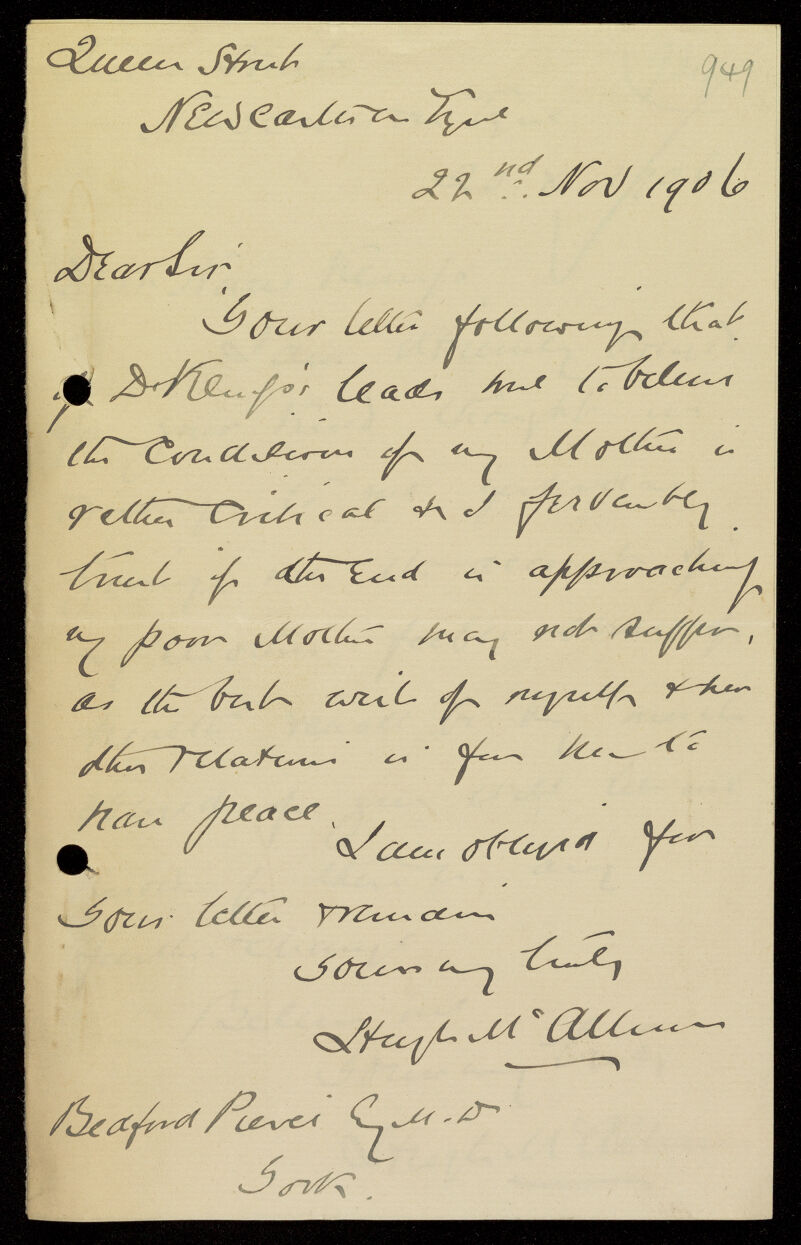 Queen Street
949
Newcastle on Tyne
22nd Nov 1906
Dear Sir
Your letter following that
of Dr leads me to believe
the condition of my Mother is
rather critical & I fervently
trust if the End is approaching
my poor Mother may not suffer,
as the best wish of myself & her
other relations is for her to
have peace.
I am obliged for
your letter & remain
Yours truly
Hugh Mc
Bedford Pierce Esq M.D
York.